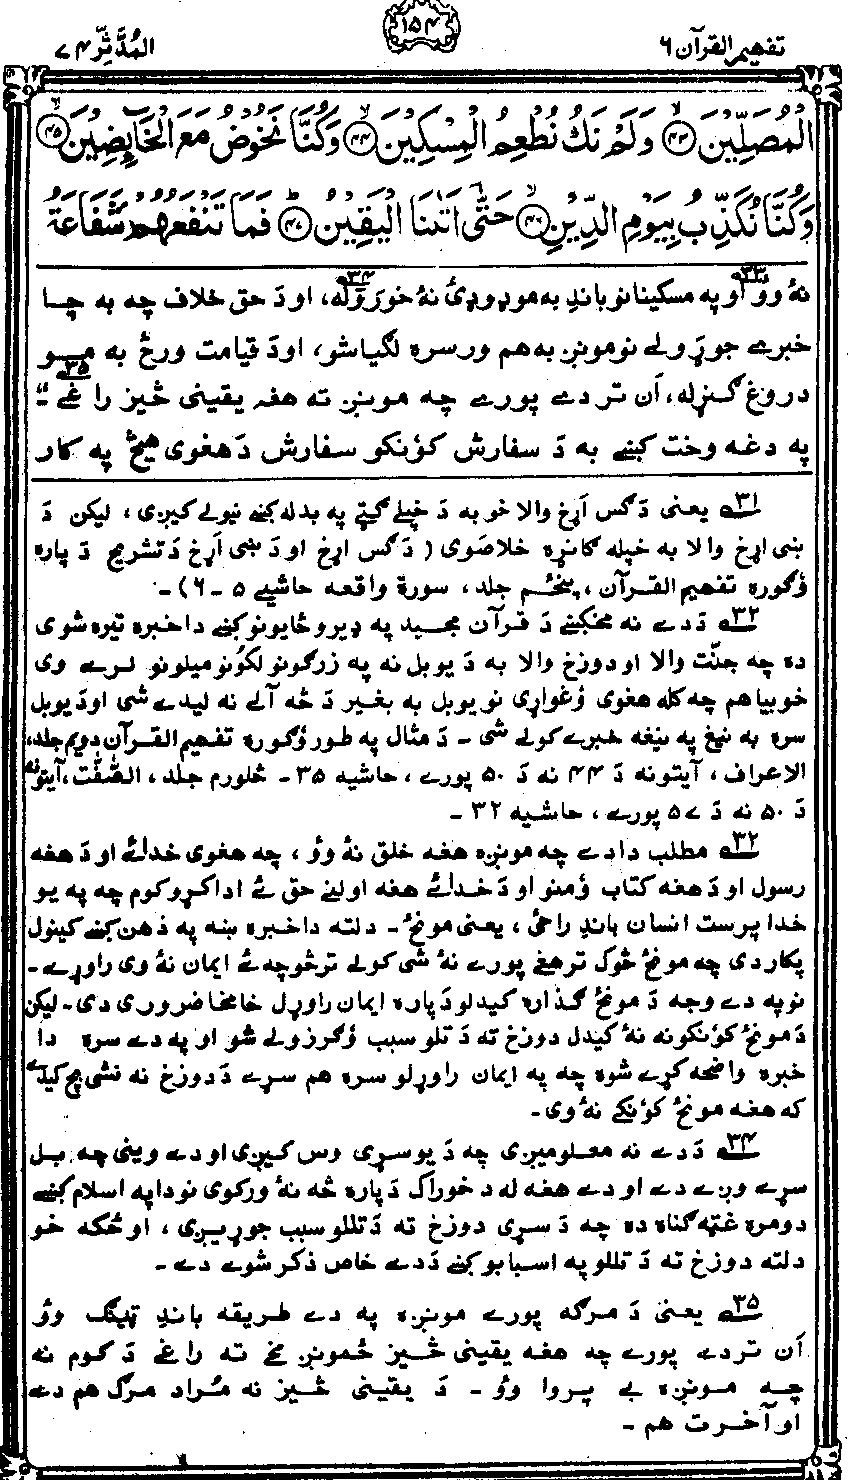 تفهیم القرآن ۶
۱۵۴
المُدَّثِّر ۷۴
الْمُصَلِّيْنَ ﴿۴۳﴾ وَلَمْ نَكُ نُطْعِمُ الْمِسْكِيْنَ ﴿۴۴﴾ وَكُنَّا نَخُوْضُ مَعَ الْخَآئِضِيْنَ ﴿۴۵﴾
وَكُنَّا نُكَذِّبُ بِيَوْمِ الدِّيْنِ ﴿۴۶﴾ حَتّٰۤى اَتٰىنَا الْيَقِيْنُ ﴿۴۷﴾ فَمَا تَنْفَعُهُمْ شَفَاعَةُ
نۀ وو ۳۳ او په مسکینانو باندِ به مو ډوډئ نۀ خورَوَله ۳۴، او دَ حق خلاف چه به چا
خبرے جوړولے نو مونږ به هم ورسره لګیا شو، او دَ قیامت ورځ به مو
دروغ ګنړله، اَن تر دے پورے چه مونږ ته هغه یقینی څیز راغے ۳۵"۔
په دغه وخت کښے به دَ سفارش کوُنکو سفارش دَ هغوی هیڅ په کار
۳۱ یعنی دَ ګس اَړخ والا خو به دَ خپلے ګټے په بدله کښے نیولے کیږی، لیکن دَ
ښی اړخ والا به خپله ګانړه خلاصوی (دَ ګس اړخ او دَ ښی اَړخ دَ تشریح دَ پاره
وُګوره تفهیم القرآن، پنځم جلد، سورة واقعه حاشیے ۵ ـ ۶)۔
۳۲ دَ دے نه مخکښے دَ قرآن مجید په ډیرو ځایونو کښے دا خبره تیره شوی
ده چه جنّت والا او دوزخ والا به دَ یو بل نه په زرګونو لکونو میلونو لرے وی
خو بیا هم چه کله هغوی وُغواړی نو یو بل به بغیر دَ څه آلے نه لیدے شی او دَ یو بل
سره به نیغ په نیغه خبرے کولے شی ـ دَ مثال په طور وُګوره تفهیم القرآن دویم جلد،
الاعراف، آیتونه دَ ۴۴ نه دَ ۵۰ پورے، حاشیه ۳۵ ـ څلورم جلد، الصّٰفّٰت، آیتونه
دَ ۵۰ نه دَ ۵۷ پورے، حاشیه ۳۲ ـ
۳۲ مطلب دا دے چه مونږه هغه خلق نۀ وؤ، چه هغوی خدائے او دَ هغه
رسول او دَ هغه کتاب وُمنو او دَ خدائے هغه اولنے حق ئے ادا کړو کوم چه په یو
خدا پرست انسان باندِ راځی، یعنی مونځ ـ دلته دا خبره ښه په ذهن کښے کینول
پکار دی چه مونځ څوک تر هغے پورے نۀ شی کولے ترڅو چه ئے ایمان نۀ وی راوړے ـ
نو په دے وجه دَ مونځ ګذاره کیدلو دَ پاره ایمان راوړل خامخا ضروری دی ـ لیکن
دَ مونځ کوُنکو نه نۀ کیدل دوزخ ته دَ تلو سبب وُګرزولے شو او په دے سره دا
خبره واضحه کړے شوه چه په ایمان راوړلو سره هم سړے دَ دوزخ نه نشی بچ کیدے
که هغه مونځ کوُنکے نۀ وی ـ
۳۴ دَ دے نه معلومیږی چه دَ یو سړی وس کیږی او دے وینی چه بل
سړے وږے دے او دے هغه له د خوراک دَ پاره څه نۀ ورکوی نو دا په اسلام کښے
دومره غټه ګناه ده چه دَ سړی دوزخ ته دَ تللو سبب جوړیږی، او ځکه خو
دلته دوزخ ته دَ تللو په اسبابو کښے دَ دے خاص ذکر شوے دے ـ
۳۵ یعنی دَ مرګه پورے مونږه په دے طریقه باندِ ټینګ وؤ
اَن تر دے پورے چه هغه یقینی څیز ځمونږ مخے ته راغے دَ کوم نه
چه مونږه بے پروا وؤ ـ دَ یقینی څیز نه مُراد مرګ هم دے
او آخرت هم ـ